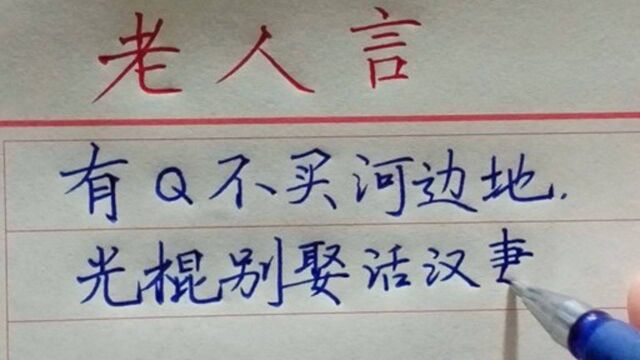 老人言
有Q不买河边地.
光棍别娶活汉妻